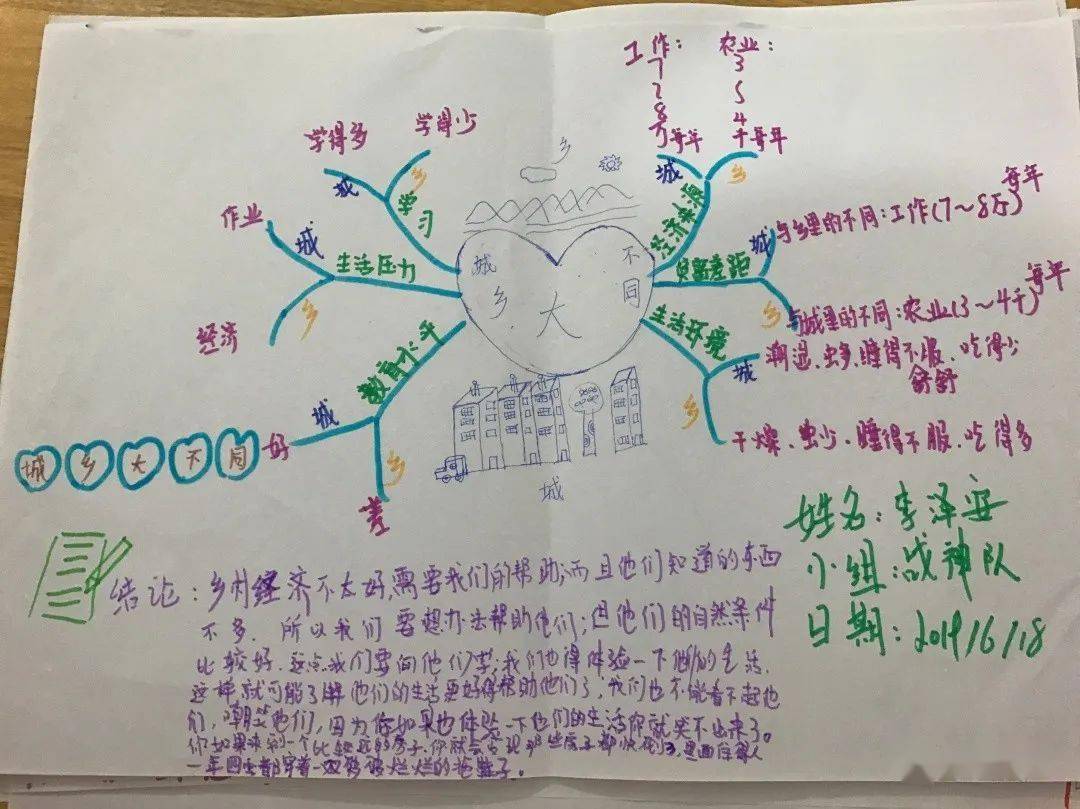 工作： 农业：
7 3
2 5
8 4
万每年 千每年
学得多 学得少
城 乡
学习
城 乡
经济来源
作业 城
生活压力
经济 乡
乡
城 乡 大 不同
贫富差距
城 与乡里的不同：工作(7～8万)每年
乡 与城里的不同：农业(3～4千)每年
生活环境
城 潮湿、虫多、睡得不服、吃得少
舒舒
乡 干燥、虫少、睡得不服、吃得多
教育水平
城 好
乡 差
城乡大不同
城
姓名：李泽安
小组：战神队
日期：2019/6/18
结论：乡村经济不太好，需要我们的帮助；而且他们知道的东西
不多．所以我们要想办法帮助他们；但他们的自然条件
比较好．这点我们要向他们学；我们也得体验一下他们的生活，
这样，就可能了解他们的生活更好得帮助他们了，我们也不能看不起他
们，嘲笑他们，因为你如果也体验一下他们的生活你就笑不出来了。
你如果来到一个比较远的房子，你就会发现那些房子都快 了，里面
一年四季都穿着一双破破烂烂的拖鞋子．